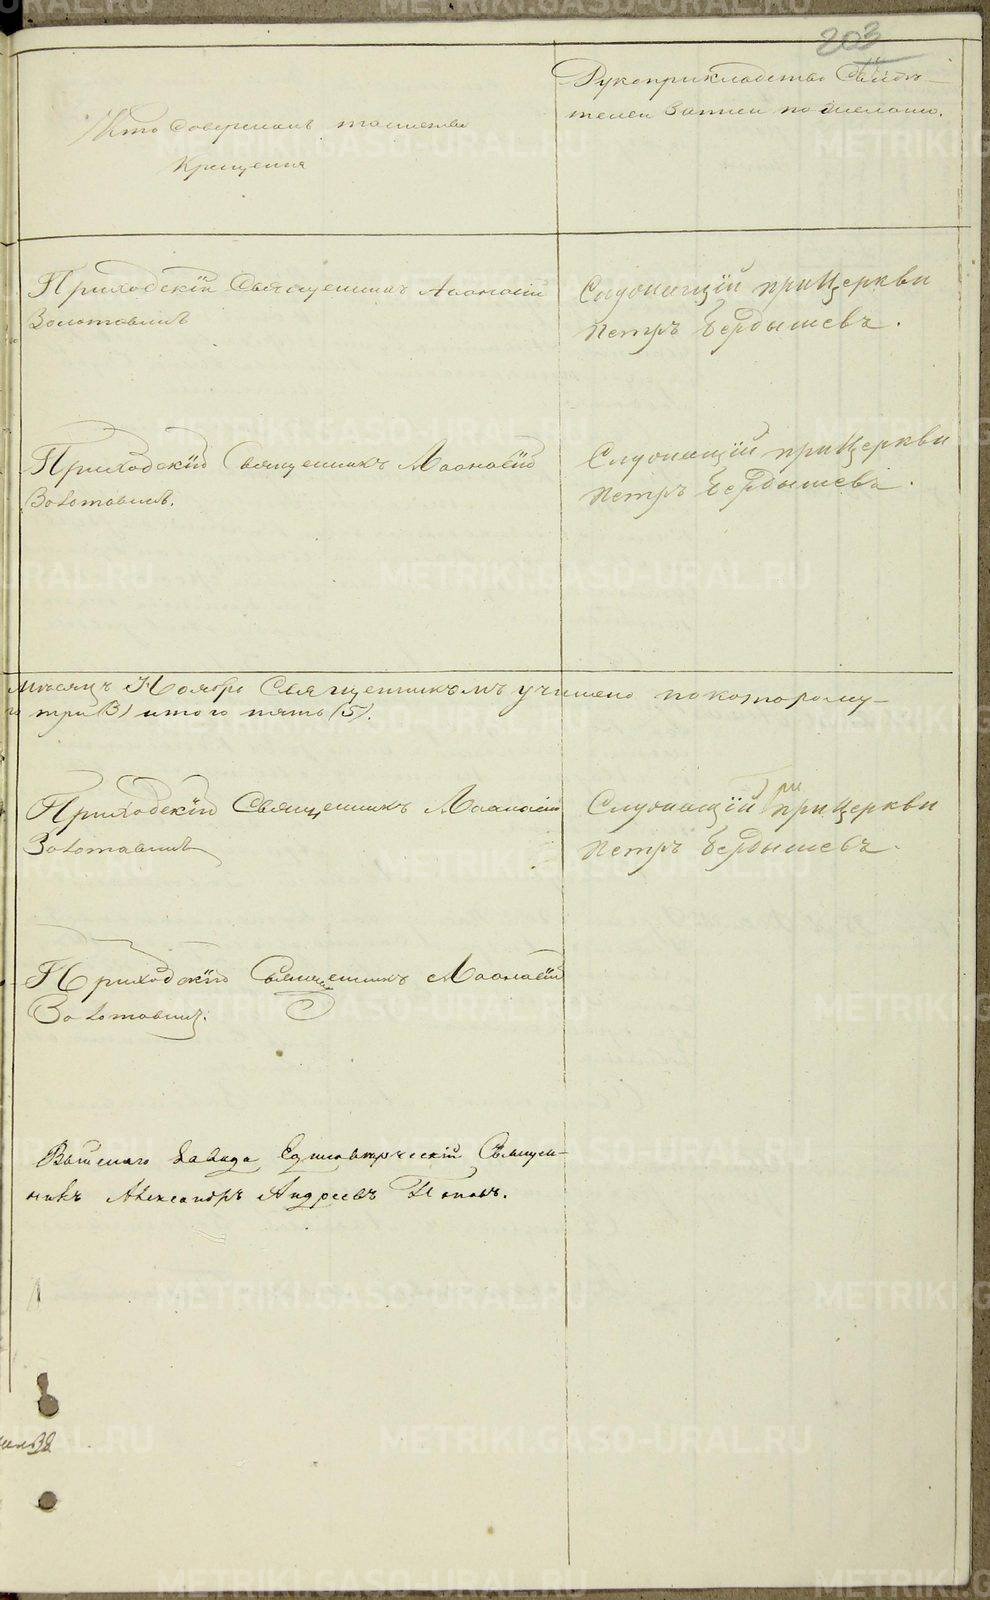 203
Кто совершалъ таинство
Крещенія
Рукоприкладство Свидѣ-
телей записи по желанію.
Приходскій Священникъ Аѳанасій
Золотавинъ
Служащій при Церкви
Петръ Бердышевъ.
Приходскій Священникъ Аѳанасій
Золотавинъ.
Служащій при Церкви
Петръ Бердышевъ.
Мѣсяцъ Ноябрь Священникомъ учинено по которому-
три (3) итого пять (5).
Приходскій Священникъ Аѳанасій
Золотавинъ
Служащій при Церкви
Петръ Бердышевъ.
Приходскій Священникъ Аѳанасій
Золотавинъ.
завода Единовѣрческій Священ-
никъ Александръ Андреевъ Поповъ.
METRIKI.GASO-URAL.RU